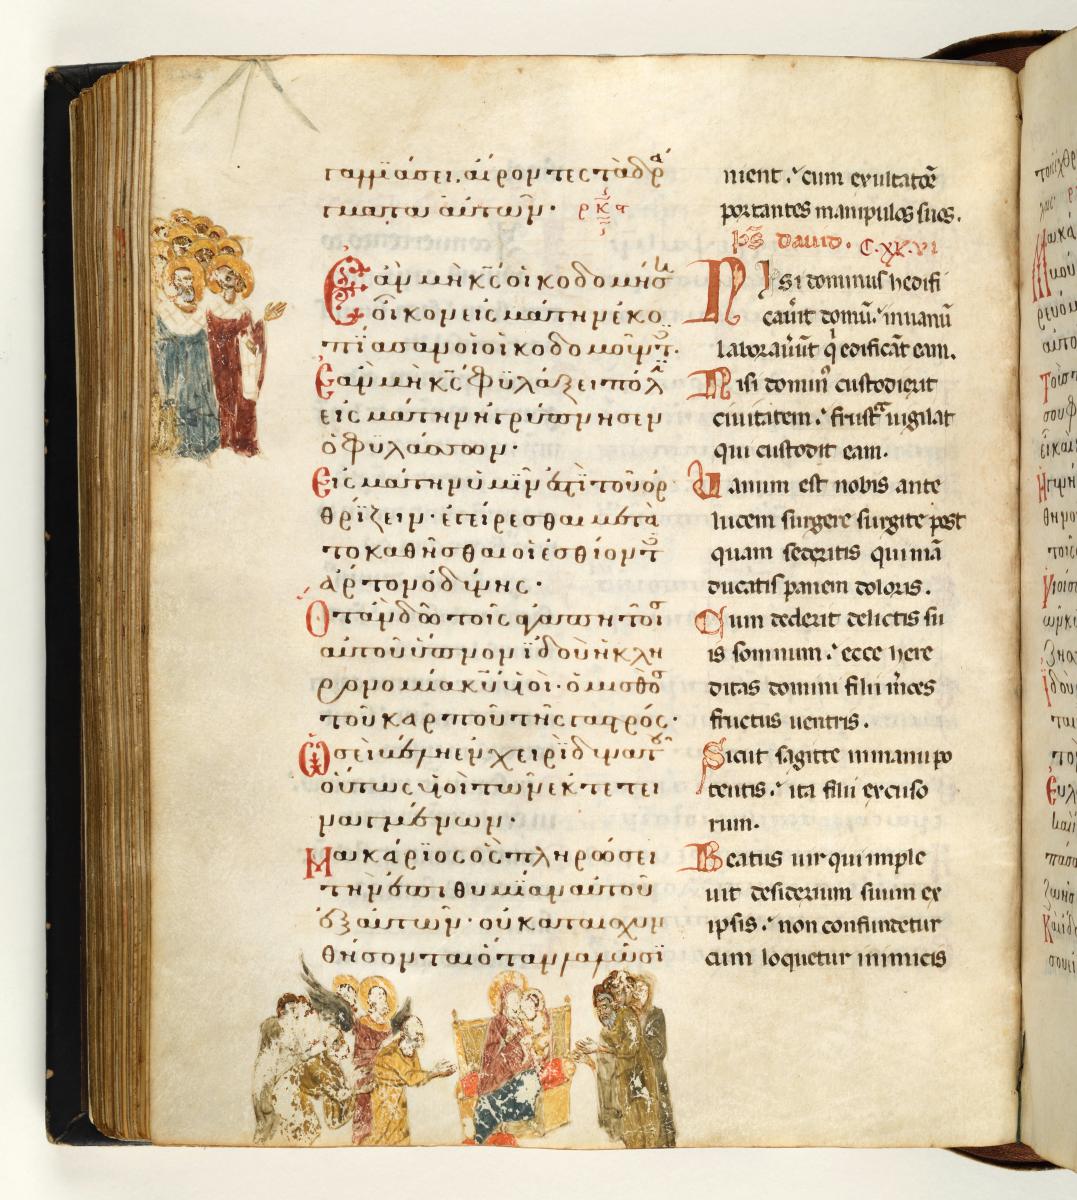 γαλλιάσει. αἴροντες τὰ δρα
γματα αὐτῶν· ρκϛ
Ἐὰν μὴ κ̅ς̅ οἰκοδομήσῃ
οἶκον εἰς μάτην ἐκο
πίασαν οἱ οἰκοδομοῦντ·
Ἐὰν μὴ κ̅ς̅ φυλάξει πόλ
εἰς μάτην ἠγρύπνησεν
ὁ φυλάσσων·
Εἰς μάτην ὑμῖν ἐστὶ τοῦ ὀρ
θρίζειν· ἐγείρεσθαι μετὰ
το καθῆσθαι οἱ ἐσθίοντ
ἄρτον ὀδύνης·
Ὅταν δῶ τοῖς ἀγαπητοῖ
αὐτοῦ ὕπνον ἰδοὺ ἡ κλη
ρονομία κ̅υ̅ υἱοί· ὁ μισθὸ
τοῦ καρποῦ τῆς γαστρός·
Ὡσεὶ βέλη ἐν χειρὶ δυνατ
οὕτως υἱοὶ τῶν ἐκτετι
ναγμένων·
Μακάριος ὃς πληρώσει
τὴν ἐπιθυμίαν αὐτοῦ
ἐξ αὐτῶν· οὐ καταισχυν
θήσονται ὅταν λαλῶσι
nient. cum exultatõe
portantes manipulos suos.
ps̄ dauid. C.XX.VI
Nisi dominus hedifi
cau̅it domū. inuanū
laborau̅ut q̇ edificāt eam.
Nisi dominꝰ custodierit
ciuitatem. frustᵃ uigilat
qui custodit eam.
Uanum est nobis ante
lucem surgere surgite post
quam sederitis qui mā
ducatis panem doloris.
Cum dederit delictis su
is somnum. ecce here
ditas domini filii m̄ces
fructus uentris.
Sicut sagitte inmanu po
tentis. ita filii excuso
rum.
Beatus uir qui imple
uit desiderium suum ex
ipsis. non confundetur
cum loquetur inimicis